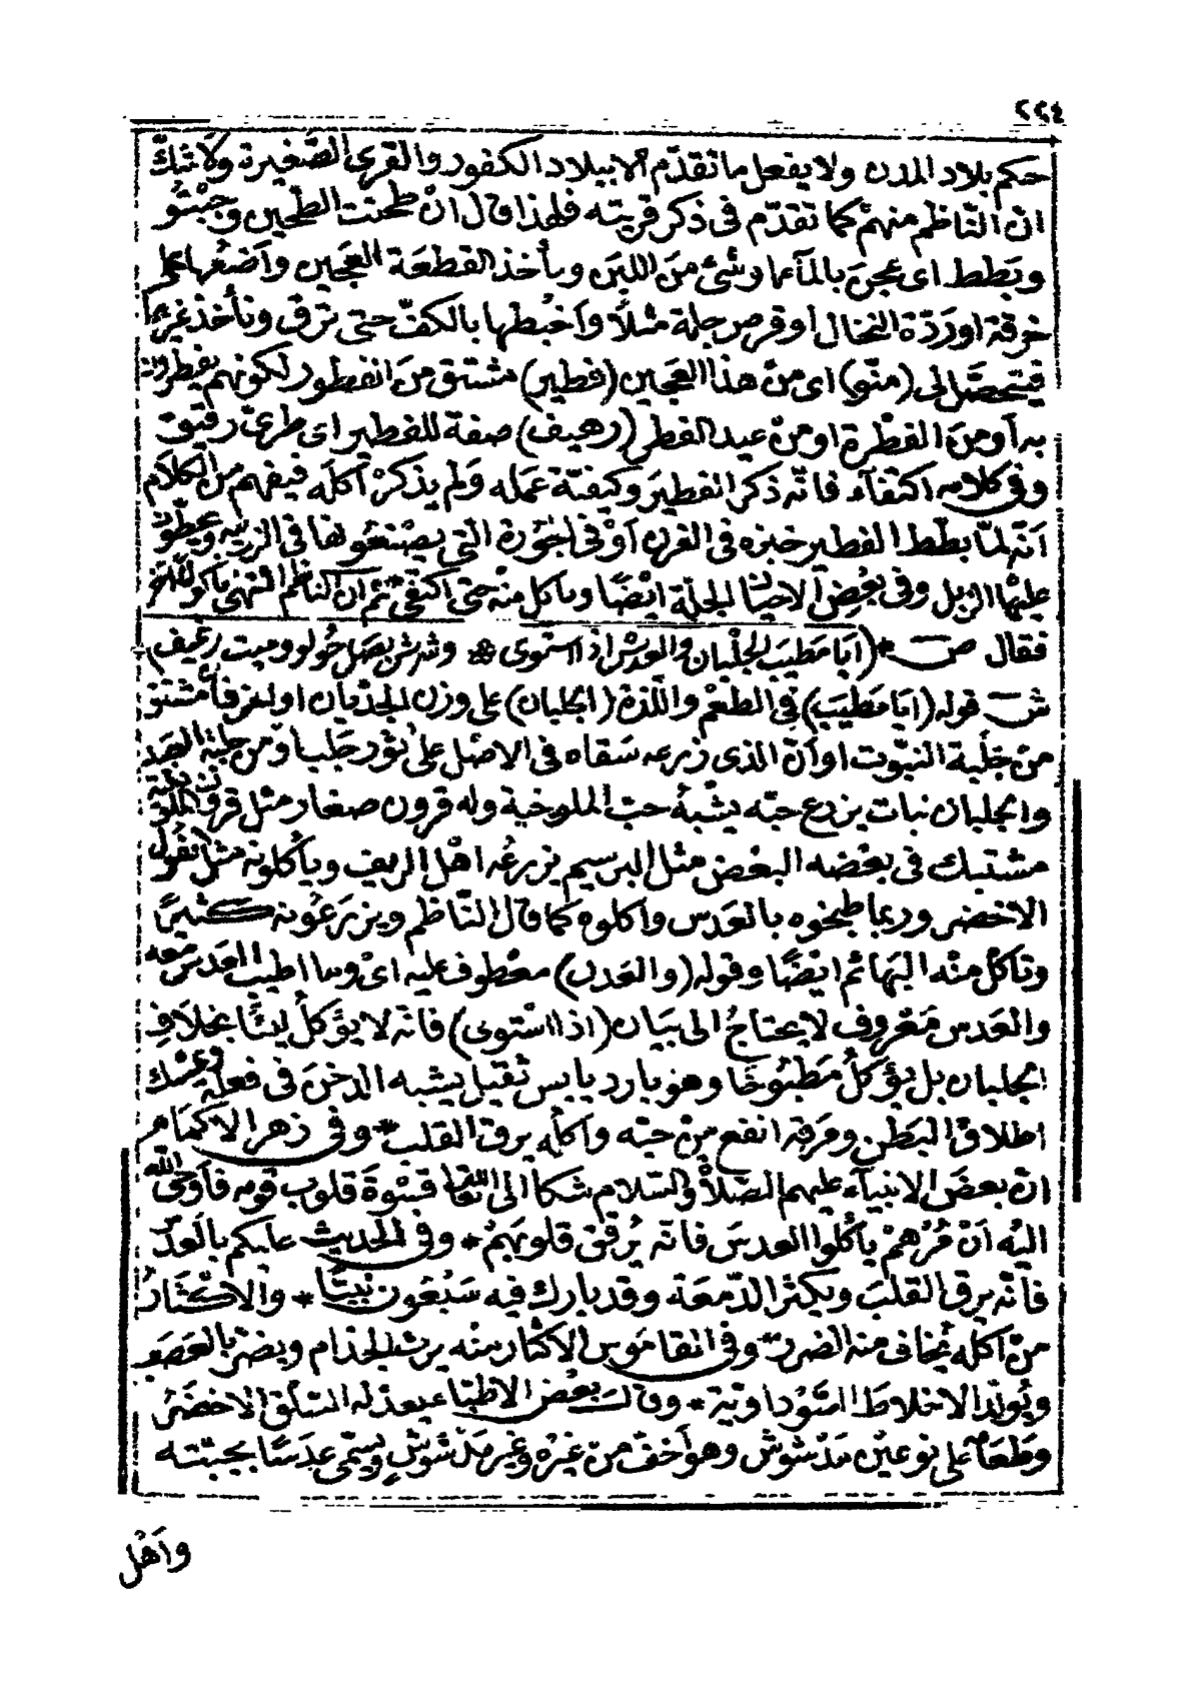 ٢٢٤
حكم بلاد المدن ولا يفعل ما تقدّم الا ببلاد الكفور والقرى الصّغيرة ولا شكّ
انّ النّاظم منهم كما تقدّم فى ذكر قريته فلهذا قال انْ طحنت الطّحين وجبْتُو
وبَطط اى عجنَ بالمآء او شئ منَ اللبَن ويأخذ القطعَة العَجين واَضعُها على
خرقة او ردّة النخال او قرص جلة مثلاً واَخبُطها بالكفّ حتى ترقّ وتأخذ غيرها
فيتحصّل لى (منّو) اى منْ هذا العَجين (فطير) مشتق منَ الفطور لكونهم يفطرون
به اَو منَ الفطْرة او منْ عيد الفطر (رهيف) صفة للفطير اى طرىّ رقيق
وفى كلامه اكتفآء فانّه ذكر الفطيرَ وكيفيّة عمَله ولم يذكرْ اكله فيفهم من الكلام
اَنّه لمّا بطط الفطير خبزه فى الفرن اَوْ فى الجُورة التى يصْنعُونها فى الزريبه ويحطّون
عليْها الزبل وفى بعْض الاحيان الجلّة ايْضًا وياكل منْه حتى اكتفى ثمّ انّ الناظم
فقال ص * (اَيَا مَطيَب الجلْبان والعدسْ اذا اسْتوى * وشرش بصَل حُولو وميت رغيف)
ش قوله (اَيَا مَطيَب) فى الطعْم واللّذة (الجلبان) على وزن الجدْيان او الخرفان مشتق
منْ جَلْبة النبّوت او اَنّ الذى زرعه سَقاه فى الاصْل علَى ثوْر جَلَبيا
والجلبان نبات يزرع حبّه يشْبهُ حبّ الملوخية وله قرون صغار مثل قرون
مشتبك فى بعْضه البعْض مثل البرسيم يزرعُه اهْل الريف وياْكلونه مثل الفول
الاخضر وربما طبخوه بالعَدس واكلوه كما قال النّاظم ويزرَعُونه كثيرًا
وتاكلُ منْه البهائم ايْضًا وقوله (والعَدس) معْطوف عليْه اىْ وما اطيب العَدسَ معه
والعَدس مَعْروف لا يحتاجُ الى بيَان (اذا اسْتوى) فانّه لا يؤكلُ نيئًا بخلافِ
الجلبان بل يؤكلُ مَطبُوخًا وهو بارد يابس ثقيل يشبه الدخنَ فى فعله وعسْك
اطلاقْ البَطن ومرقه انفع منْ حبّه واَكله يرق القلب * وفى زهر الاكمام
انّ بعضَ الانبيآء عليهم الصّلاْة والسّلام شكا الى الله تعَالى قسْوةَ قلوب قومه فاَوحَى الله
اليْه اَنْ مُرْهمْ ياْكلوا العدسَ فانّه يُرقق قلوبَهمْ * وفى الحديث عليكم بالعَدس
فانّه يرق القلبَ ويكثر الدّمعَة وقد بارك فيه سَبْعُون نبيًّا * والاكثارُ
منْ اكله يُخاف منه الضرر وفى القامَوس الاكثار منْه يرث الجذام ويضرّ بالعَصَب
ويُولّد الاخلاطَ السّوداويّة * وقالَ بعْض الاطبّا يعدله السّلق الاخضرُ
وطعَامٌ على نوعيْن مَدْشوش وهو اَخفّ من غيْره وغير مَدْشوشٍ ويسمّى عدَسًا بجبّته
واَهْل